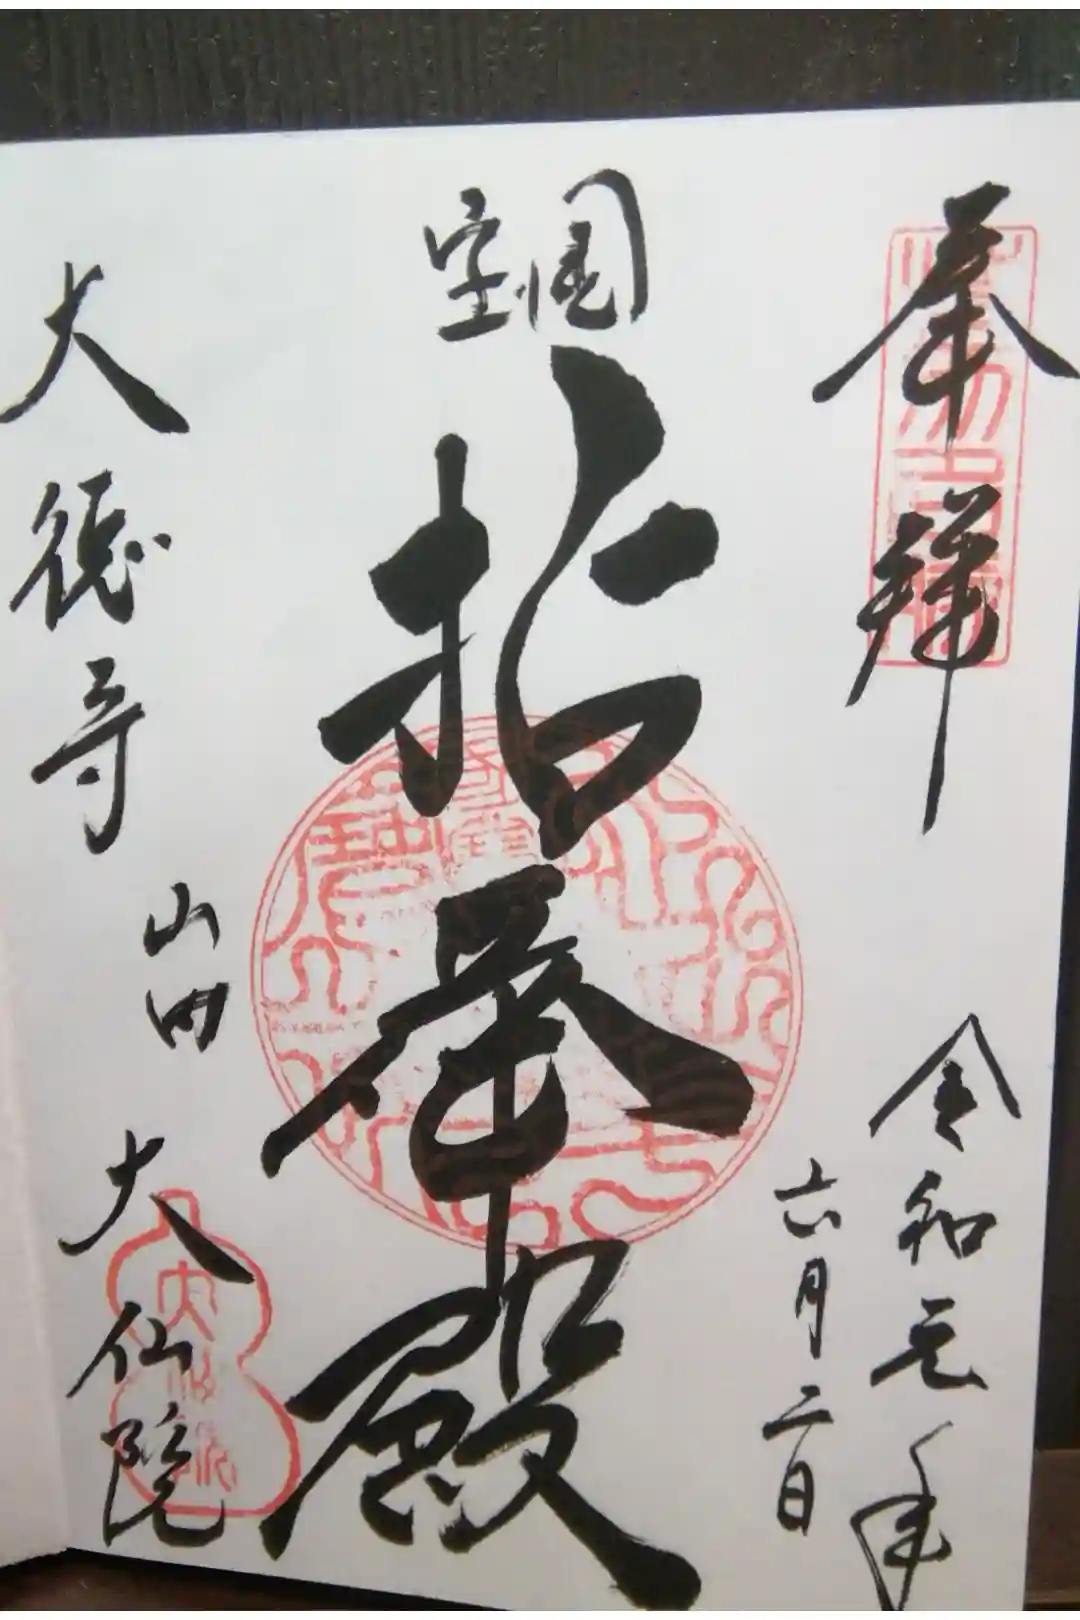 奉拝
令和元年
六月二日
国宝
拈華殿
大徳寺
山内
大仙院
大仙院